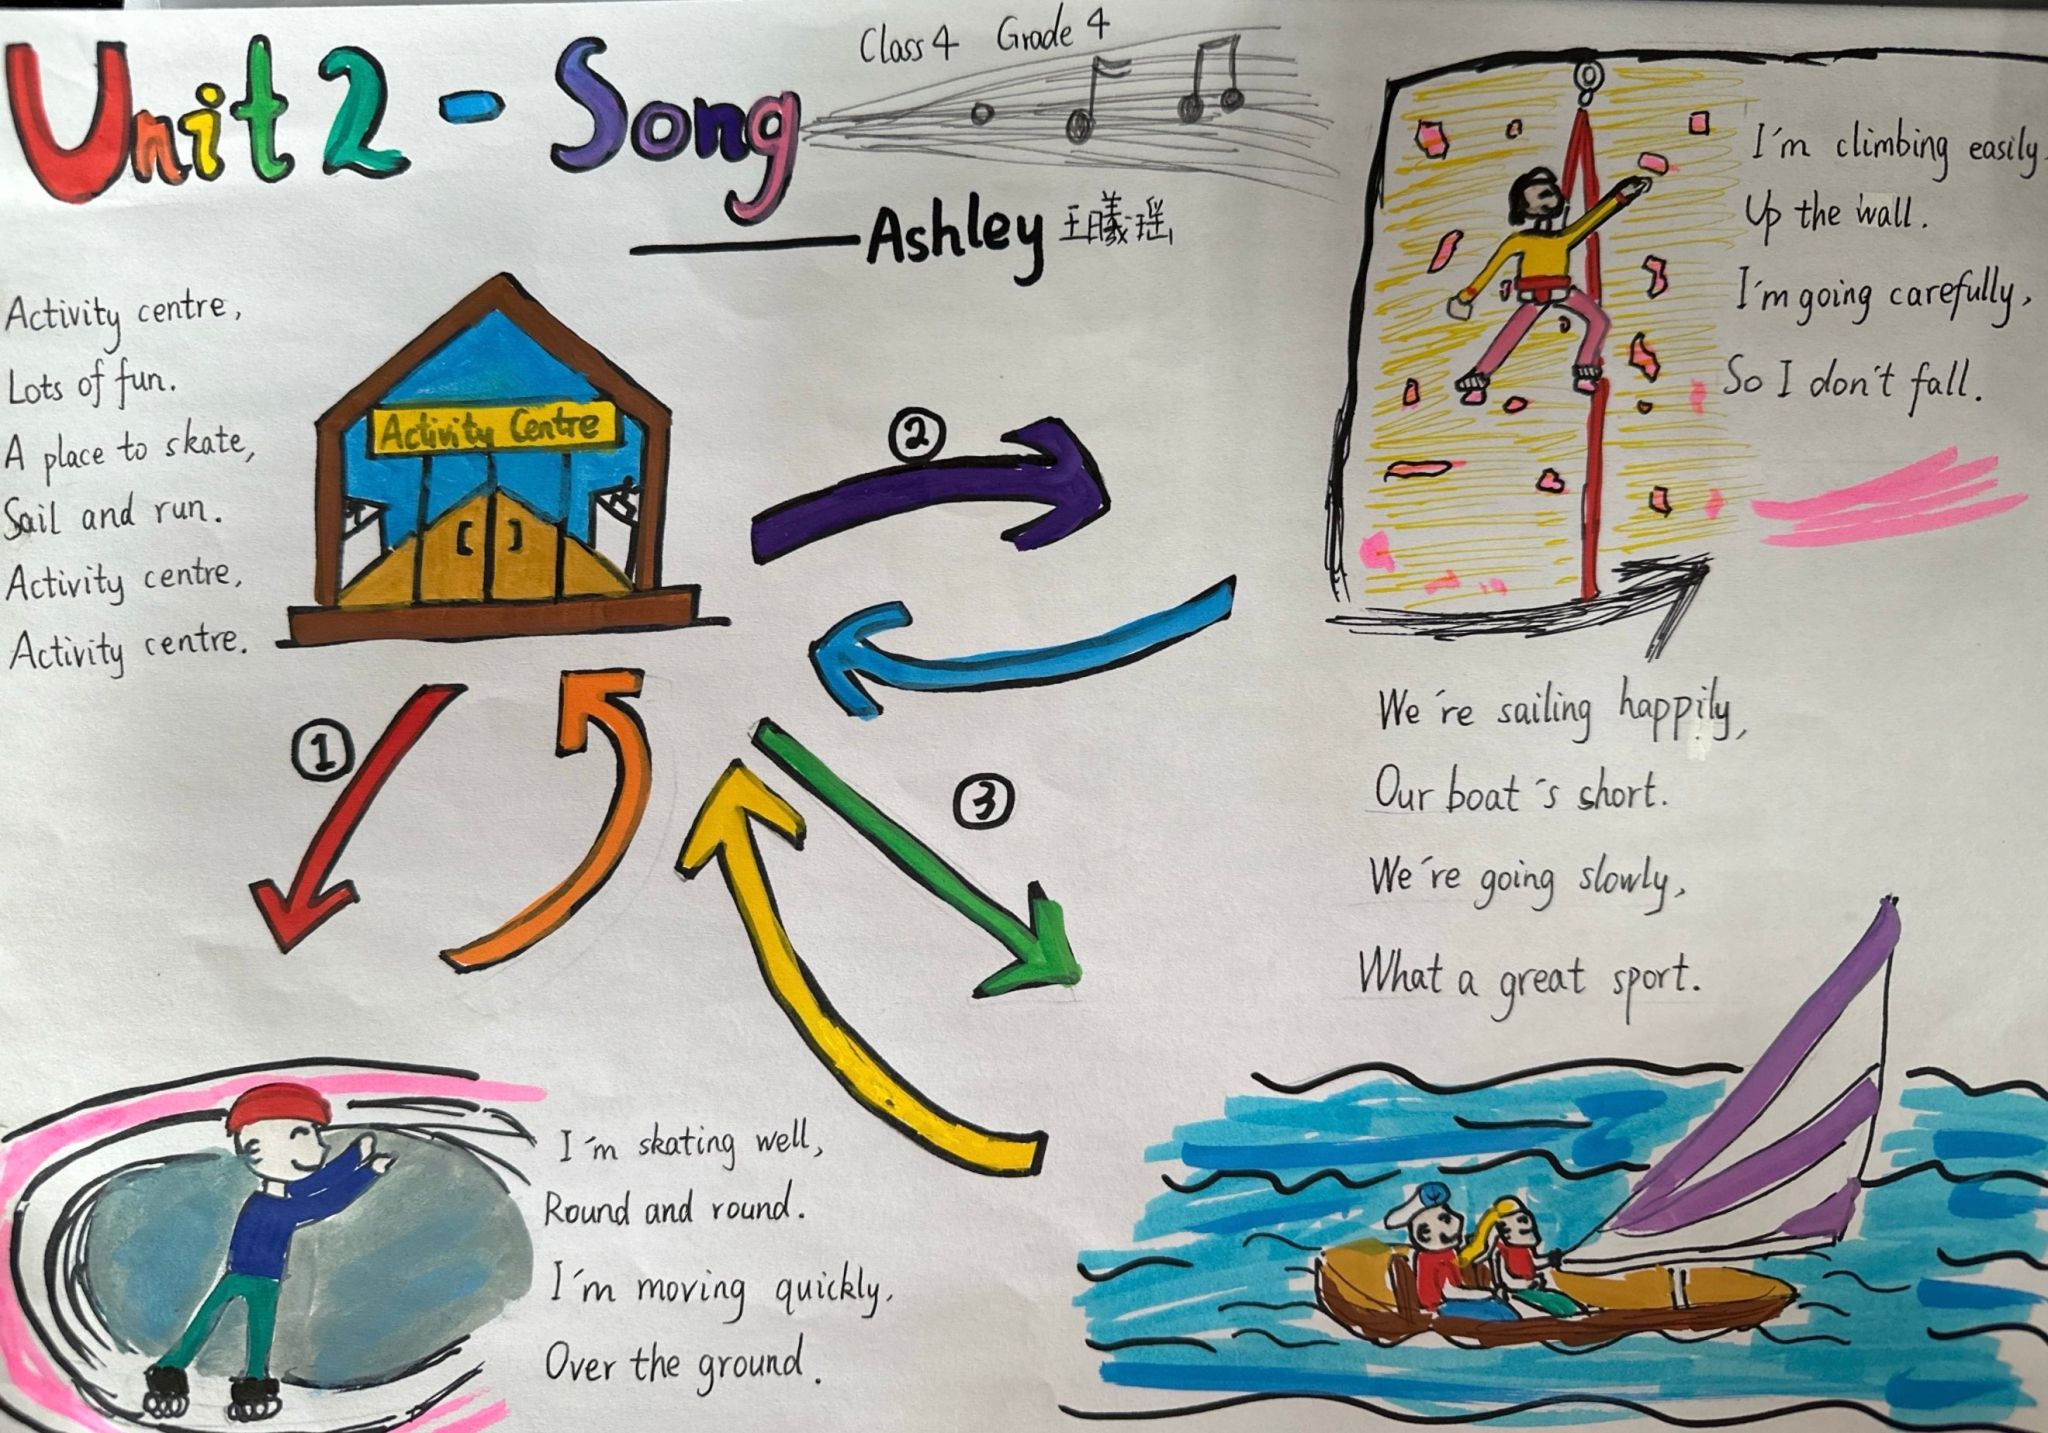 Unit 2 - Song
Class 4 Grade 4
Ashley 王曦瑶
Activity centre,
Lots of fun.
A place to skate,
Sail and run.
Activity centre,
Activity centre.
Activity Centre
1
I'm skating well,
Round and round.
I'm moving quickly,
Over the ground.
2
I'm climbing easily,
Up the wall.
I'm going carefully,
So I don't fall.
3
We're sailing happily,
Our boat's short.
We're going slowly,
What a great sport.